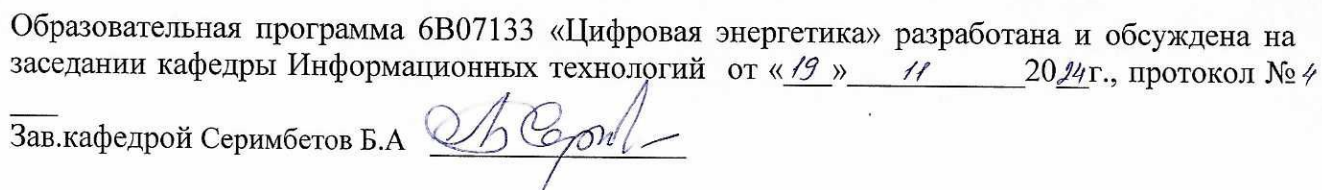 Образовательная программа 6В07133 «Цифровая энергетика» разработана и обсуждена на
заседании кафедры Информационных технологий от «19» 11 2024г., протокол № 4
Зав.кафедрой Серимбетов Б.А